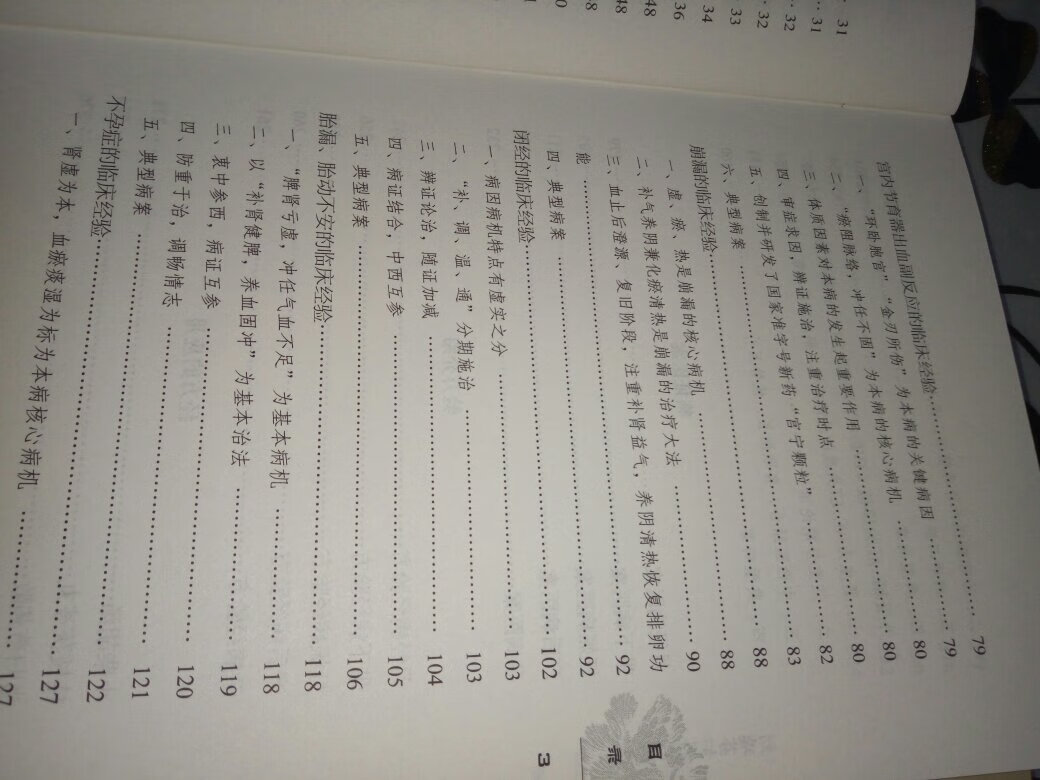 31
31
32
32
33
34
36
48
48
宫内节育器出血副反应的临床经验……79
一、“环卧胞宫”“金刃所伤”为本病的关键病因……79
二、“瘀阻脉络，冲任不固”为本病的核心病机……80
三、体质因素对本病的发生起重要作用……80
四、审症求因，辨证施治，注重治疗时点……80
五、创制并研发了国家准字号新药“宫宁颗粒”……82
六、典型病案……83
崩漏的临床经验……88
一、虚、瘀、热是崩漏的核心病机……88
二、补气养阴兼化瘀清热是崩漏的治疗大法……90
三、血止后澄源、复旧阶段，注重补肾益气，养阴清热恢复排卵功
能……92
四、典型病案……92
闭经的临床经验……102
一、病因病机特点有虚实之分……103
二、“补、调、温、通”分期施治……103
三、辨证论治，随证加减……104
四、病证结合，中西互参……105
五、典型病案……106
胎漏、胎动不安的临床经验……118
一、“脾肾亏虚，冲任气血不足”为基本病机……118
二、以“补肾健脾，养血固冲”为基本治法……119
三、衷中参西，病证互参……120
四、防重于治，调畅情志……121
五、典型病案……122
不孕症的临床经验……127
一、肾虚为本，血瘀痰湿为标为本病核心病机……127
目录
3